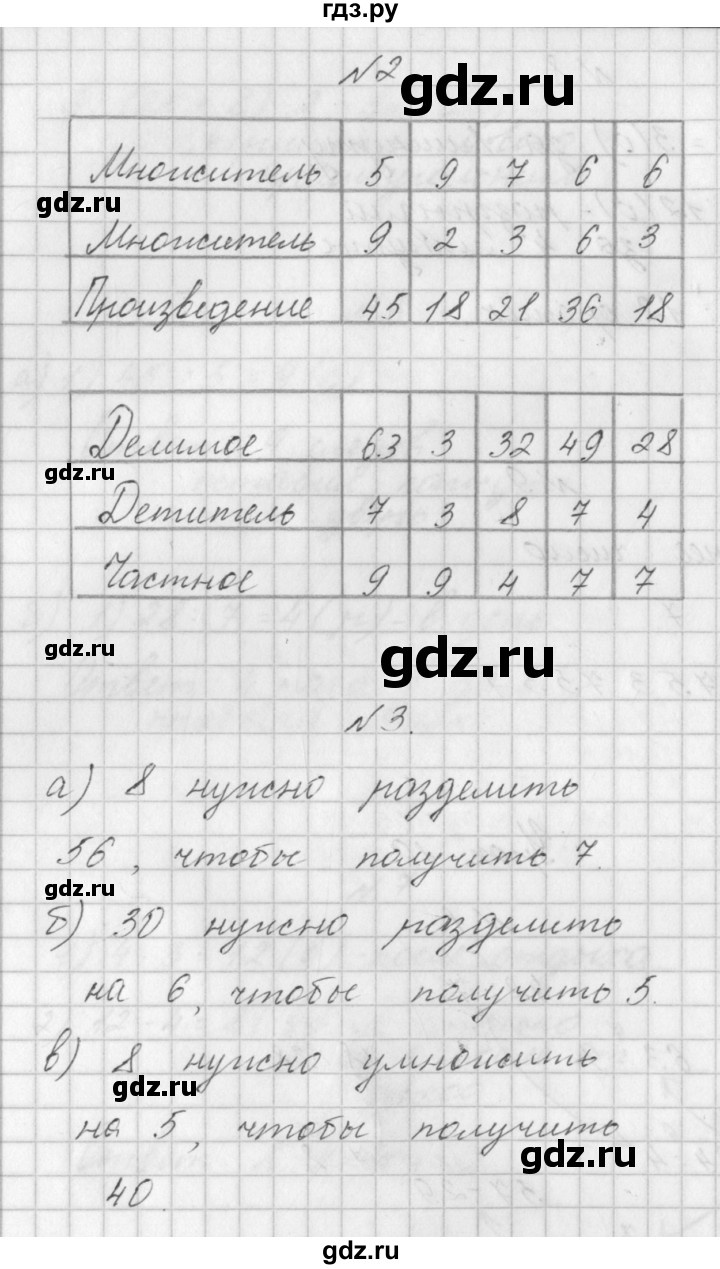 гдз.ру
№2
gdz.ru
Множитель 5 9 7 6 6
gdz.ru
Множитель 9 2 3 6 3
Произведение 45 18 21 36 18
Делимое 63 3 32 49 28
gdz.ru
Детитель 7 3 8 7 4
Частное 9 9 4 7 7
gdz.ru
gdz.ru
№3.
а) 8 нужно разделить
56, чтобы получить 7.
gdz.ru
б) 30 нужно разделить
на 6, чтобы получить 5.
в) 8 нужно умножить
gdz.ru
на 5, чтобы получить
gdz.ru
40
gdz.ru